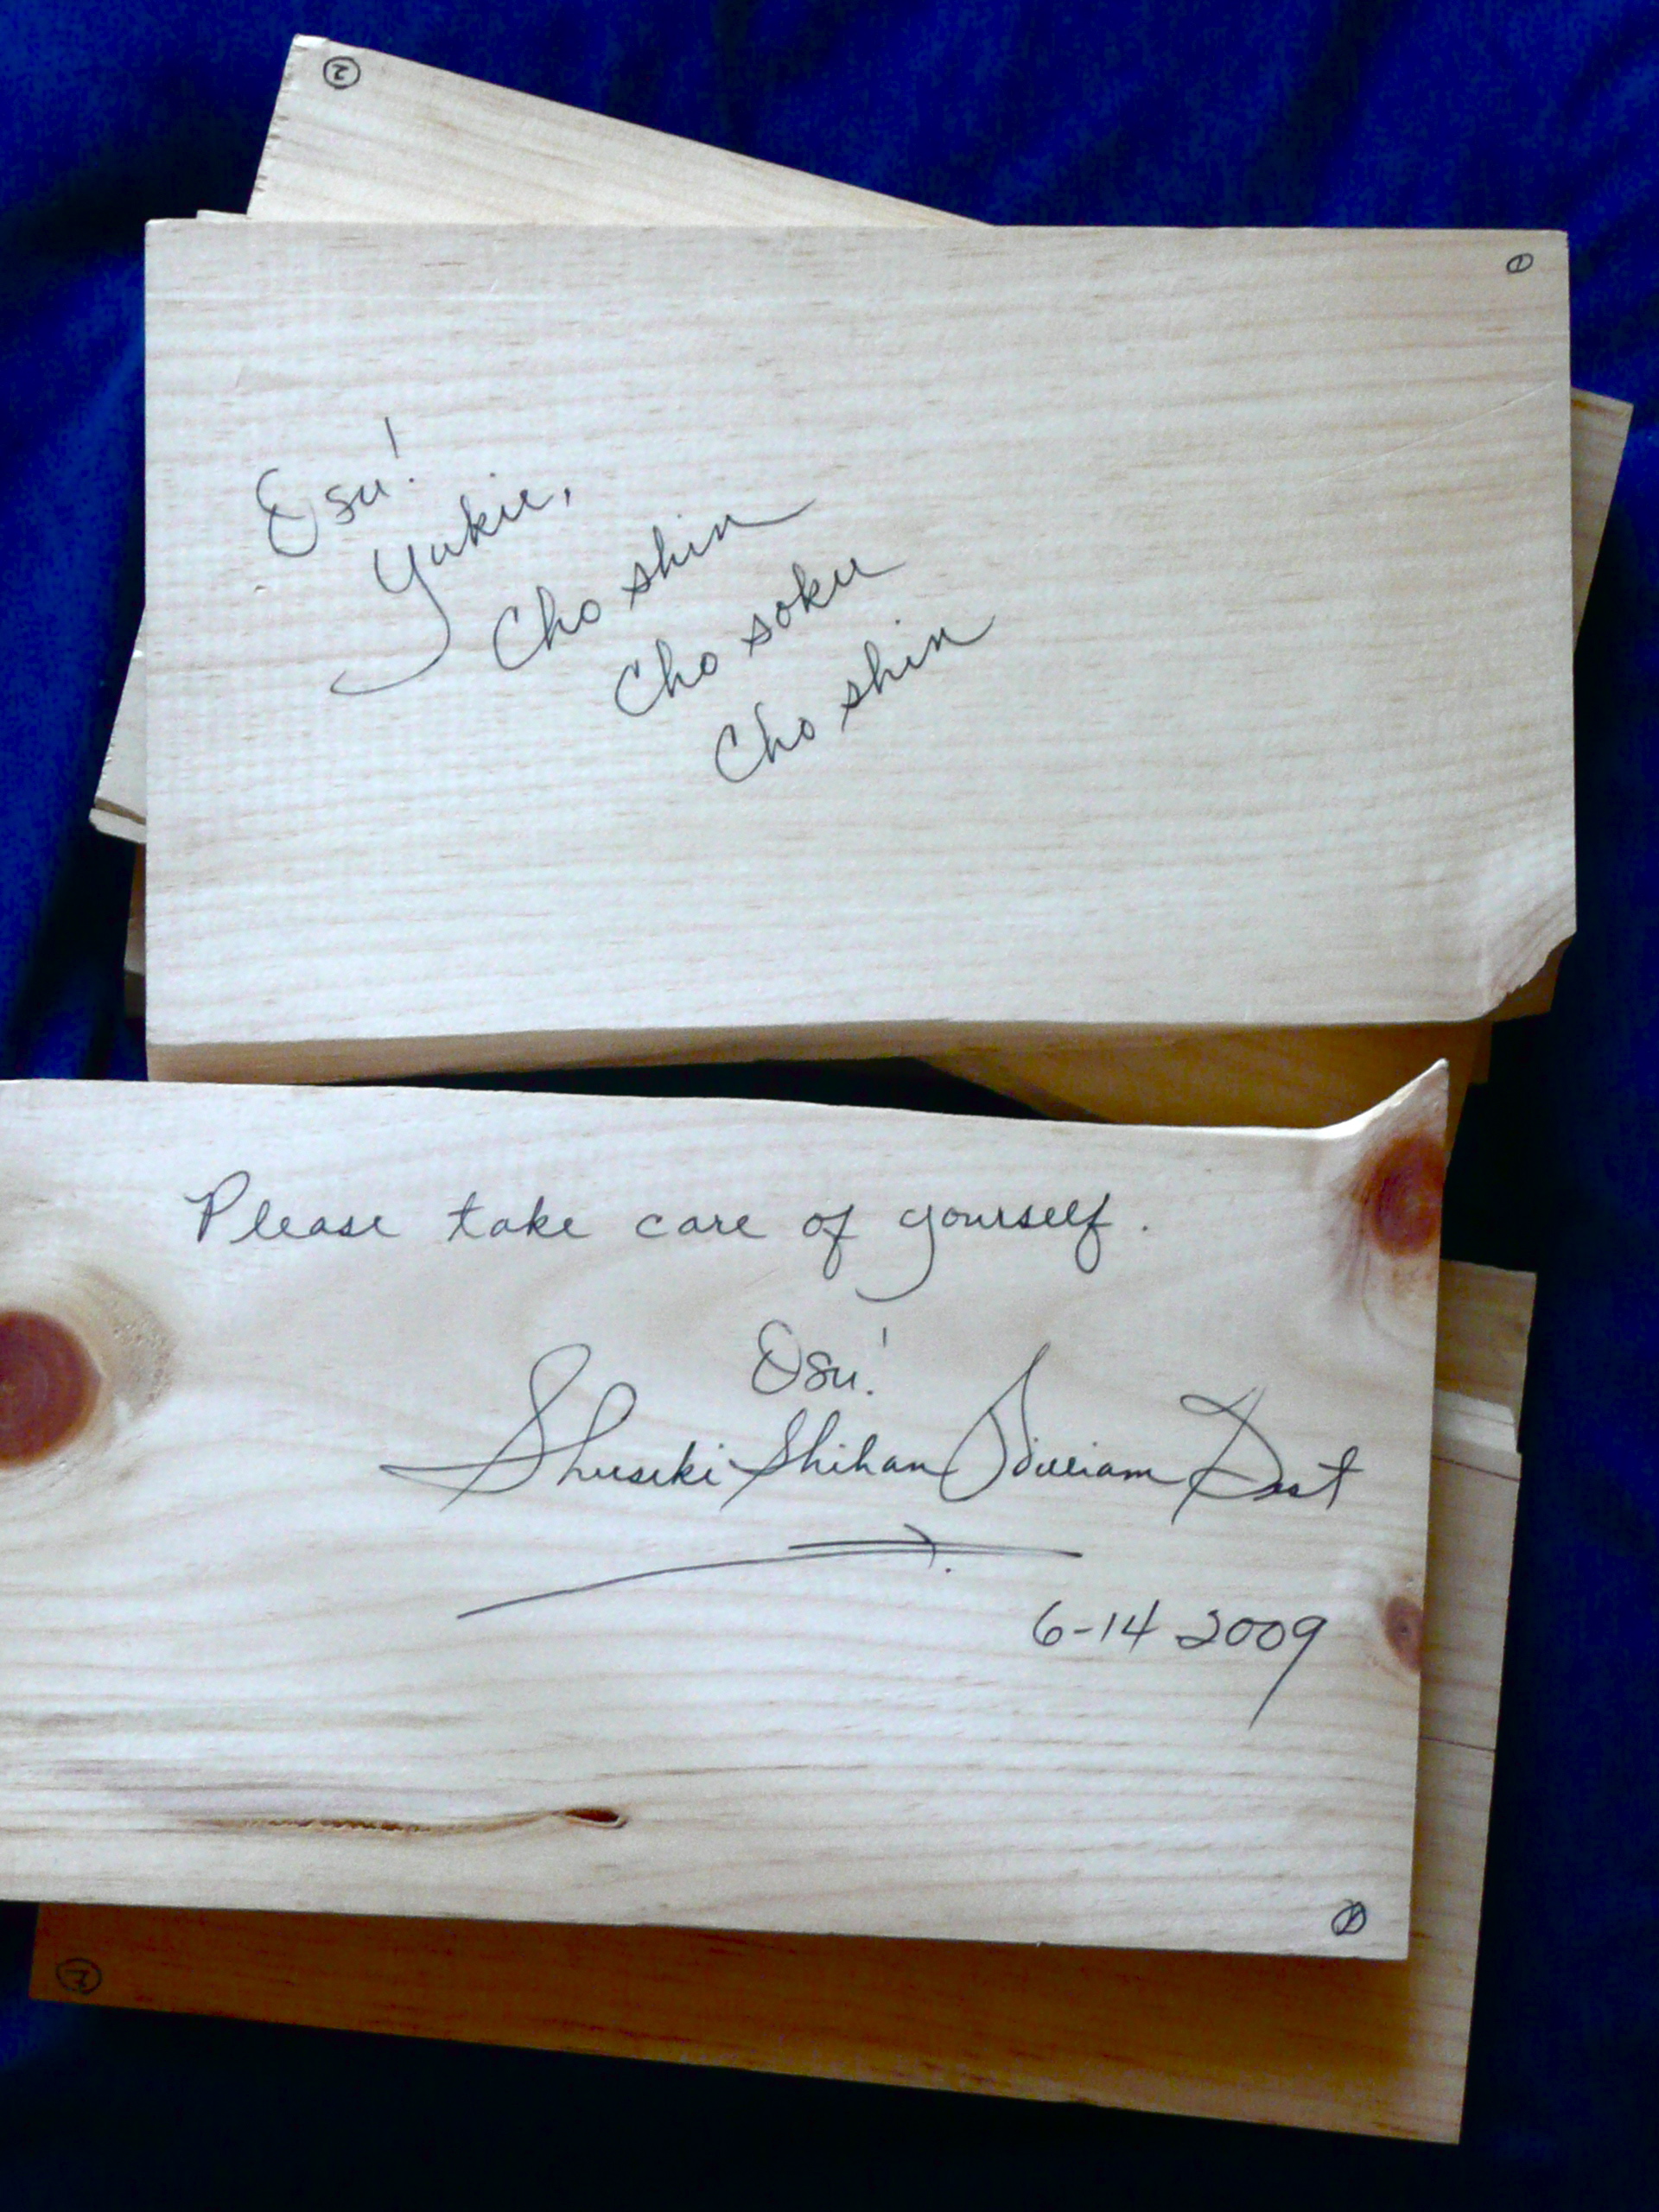 ②
①
Osu!
Yukie,
Cho shin
Cho soku
Cho shin
Please take care of yourself.
Osu!
Shuseki Shihan William
6-14 2009
②